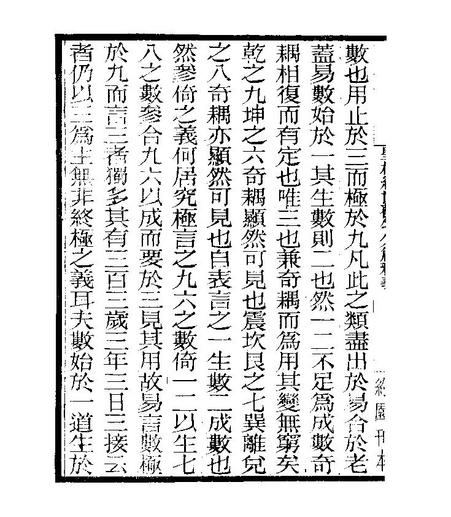 數也用止於三而極於九凡此之類盡出於易合於老
蓋易數始於一其生數則二也然一二不足爲成數奇
耦相復而有定也唯三也兼奇耦而爲用其變無窮矣
乾之九坤之六奇耦顯然可見也震坎艮之七巽離兌
之八奇耦亦顯然可見也自表言之一生數二成數也
然參倚之義何居究極言之九六之數倚一二以生七
八之數參合九六以成而要於三見其用故易言數極
於九而言三者獨多其有三百三歲三年三日三接云
者仍以三爲主無非終極之義耳夫數始於一道生於